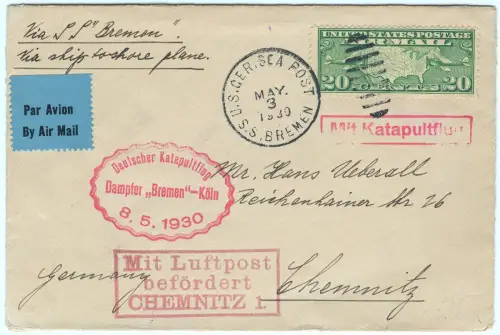 Via S S "Bremen".
via ship to shore plane.
UNITED STATES POSTAGE
AIR MAIL
20 CENTS 20
U.S. GER. SEA POST
MAY.
3
1930
S.S. BREMEN
Par Avion
By Air Mail
Mit Katapultflug
Deutscher Katapultflug
Dampfer „Bremen"-Köln
8.5.1930
Mr. Hans Ueberall
Reichenhainer Str 26
Mit Luftpost
befördert
CHEMNITZ 1.
Germany
Chemnitz